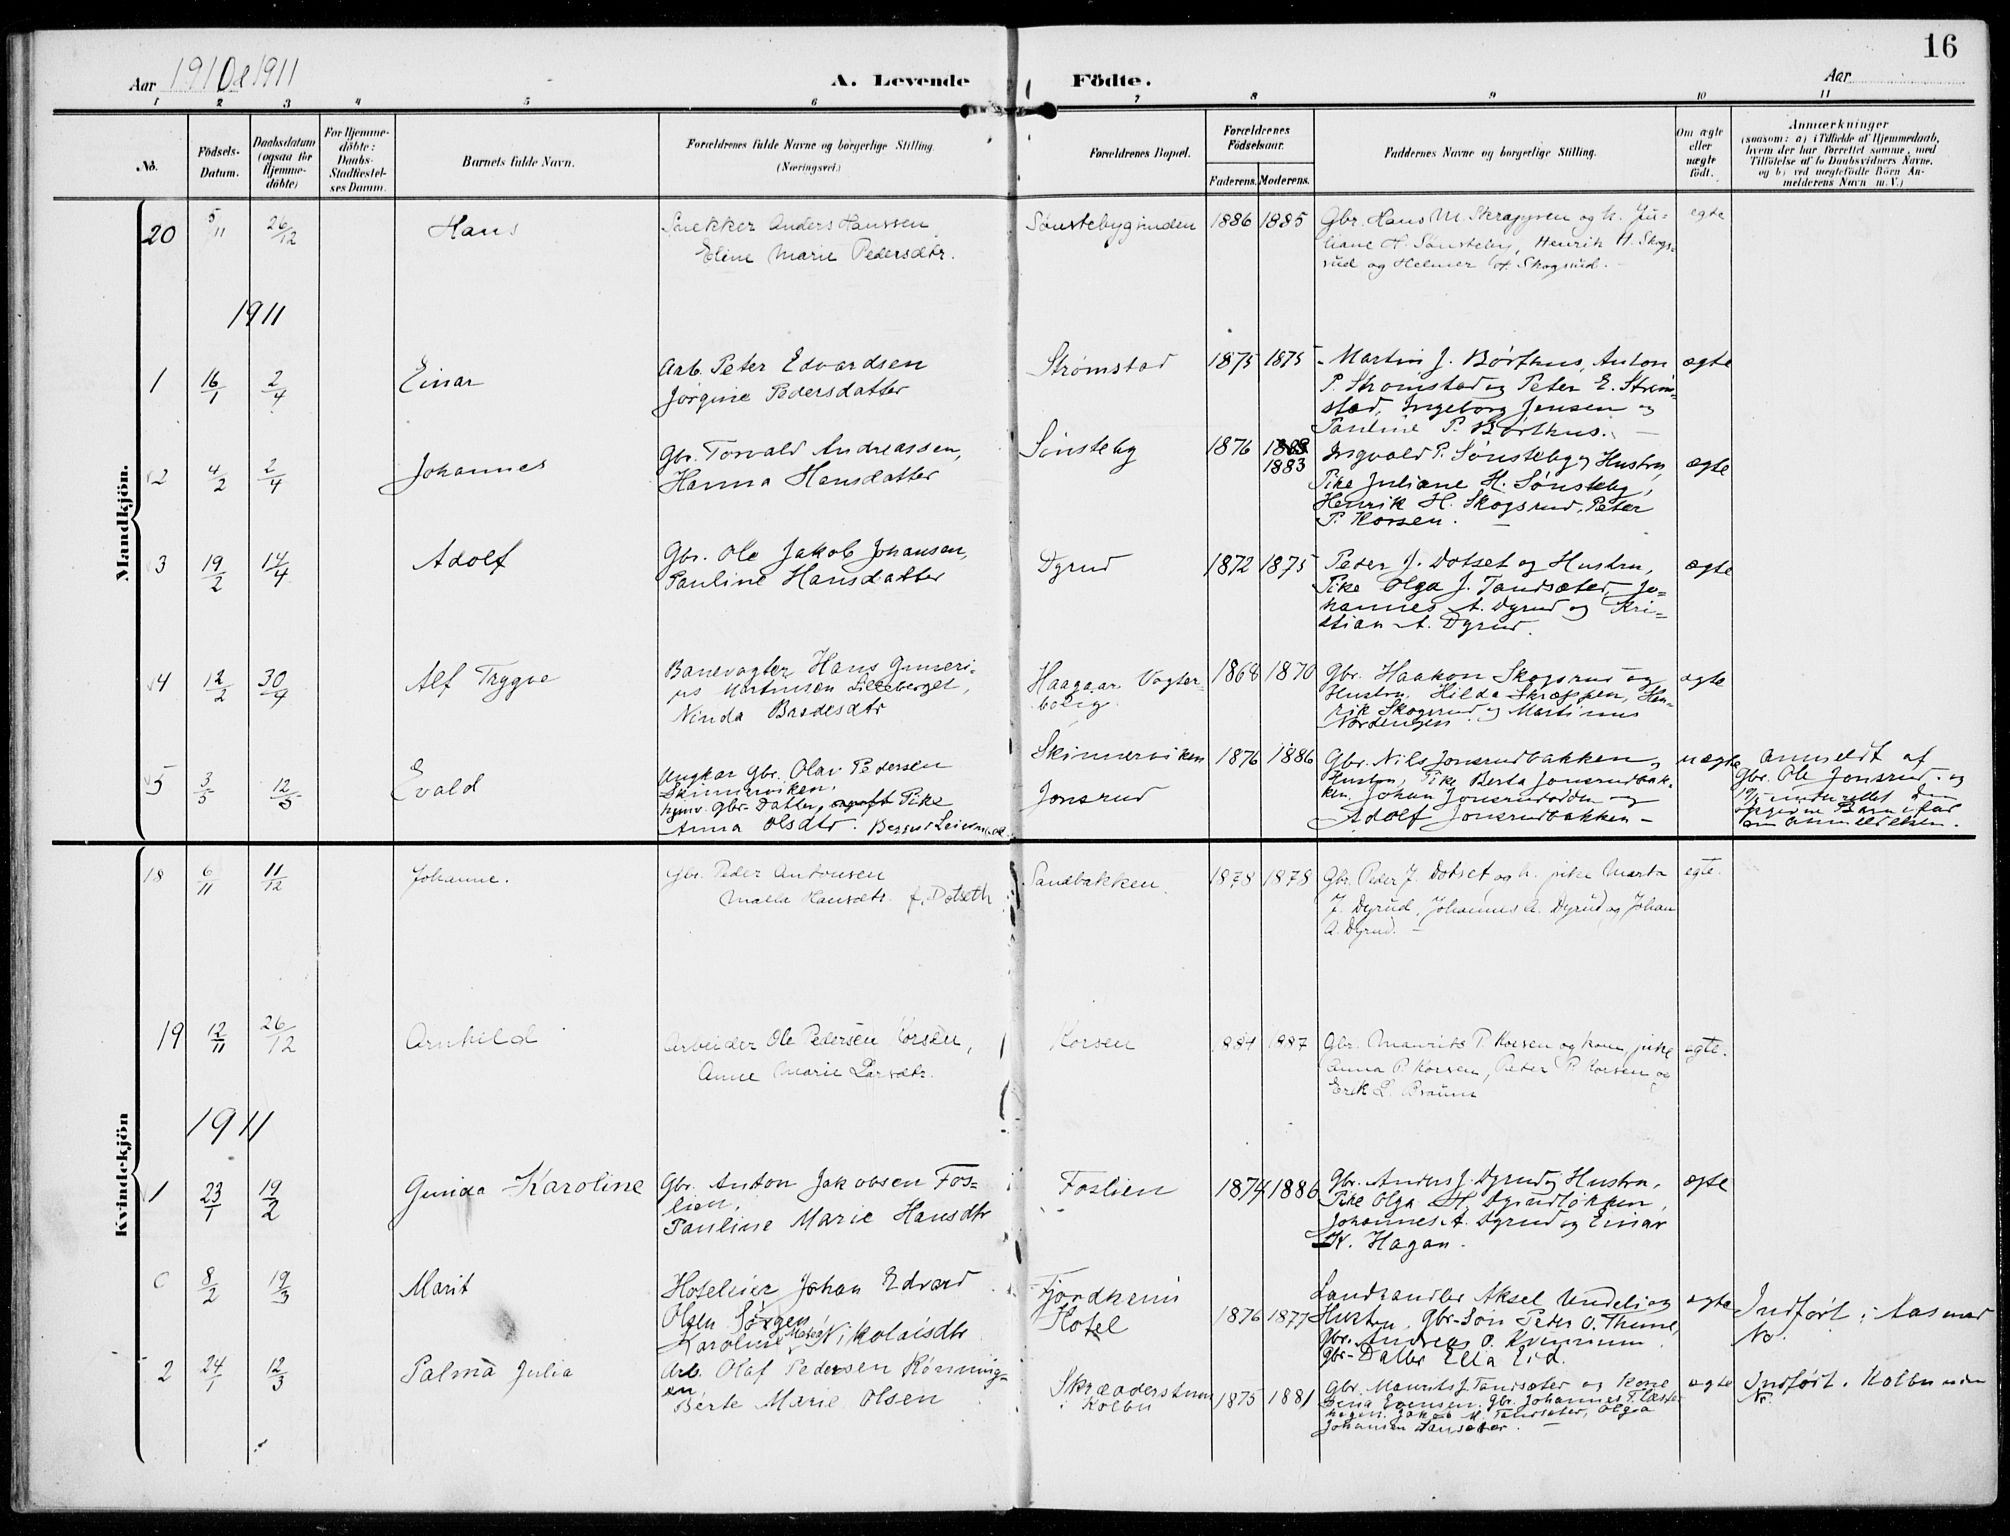 16
Aar 1910 & 1911
A. Levende Födte.
Aar
1 2 3 4 5 6 7 8 9 10 11
No.
Födsels-
Datum.
Daabsdatum
(ogsaa for
Hjemme-
döbte)
For Hjemme-
döbte:
Daabs-
Stadfæstel-
ses Datum.
Barnets fulde Navn.
Forældrenes fulde Navne og borgerlige Stilling.
(Næringsvei.)
Forældrenes Bopæl.
Forældrenes
Födselsaar.
Faderens. Moderens.
Faddernes Navne og borgerlige Stilling.
Om ægte
eller
uægte
födt.
Anmærkninger
(saasom: a) i Tilfælde af Hjemmedaab,
hvem der har forrettet samme, med
Tilföielse af to Daabsvidners Navne.
og b) ved uægtefödte Börn An-
melderens Navn m. V.)
Mandkjön.
20 5/11 26/12 Hans
Snekker Anders Hanssen
Eline Marie Pedersdtr.
Sønstebygrinden 1886 1885
Gbr. Hans M. Skrapyren og h. Ju-
liane H. Sønsteby, Henrik H. Skogs-
rud og Helmer H. Skogsrud. -
egte
1911
1 16/1 2/4 Einar
Arb. Peter Edvardsen
Jørgine Pedersdatter
Strømstad 1875 1875
Martin J. Børthus, Anton
P. Strømstad og Peter E. Strøm-
stad, Ingeborg Jensen og
Pauline P. Børthus. -
ægte
2 4/2 2/4 Johannes
Gbr. Torvald Andreassen,
Hanna Hansdatter
Sønsteby 1876
1883
Ingvald P. Sønsteby og Hustru,
Pike Juliane H. Sønsteby,
Henrik H. Skogsrud, Peter
P. Korsen. -
ægte
3 19/2 14/4 Adolf
Gbr. Ole Jakob Johansen,
Pauline Hansdatter
Dyrud 1872 1875
Peder J. Dotset og Hustru,
Pike Olga J. Tandsæter, Jo-
hannes A. Dyrud og Kri-
stian A. Dyrud.
ægte
4 12/2 30/4 Alf Trygve
Banevogter Hans Guneri-
us Martinsen Lilleberget,
Ninda Baddesdtr
Haagaar Vogter-
bolig. 1868 1870
Gbr. Haakon Skogsrud og
Hustru, Hilda Skræppen, Hen-
rik Skogsrud og Martinus
Nordengen
ægte
5 3/3 12/5 Evald
Ungkar Gbr. Olav Pedersen
Skinnerviken.
hjemv. Gbr. Datter, Pike
Anna Olsdtr.
Skinnerviken
Jonsrud 1876 1886
Gbr. Nils Jonsrudbakken og
Hustru, Pike Berta Jonsrudbak-
ken, Johan Jonsrudodden og
Adolf Jonsrudbakken -
uægte
Anmeldt af
Gbr. Ole Jonsrud. og
Kvindekjön
18 6/11 11/12 Johanne.
Gbr. Peder Antonsen
Malla Hansdtr. f. Dotseth
Sandbakken. 1878 1878
Gbr. Peder J. Dotset og h. pike Marta
J. Dyrud, Johannes A. Dyrud og Johan
A. Dyrud. -
egte.
19 12/11 26/12 Arnhild
Arbeider Ole Pedersen Korsen,
Anne Marie Larsdtr.
Korsen 1884 1887
Gbr. Maurits P. Korsen og kone, pike
Anna P. Korsen, Peter P. Korsen og
Erik L. Braun
egte.
1911
1 23/1 19/2 Gunda Karoline
Gbr. Anton Jakobsen Fos-
lien,
Pauline Marie Hansdtr
Foslien 1874 1886
Gbr. Anders J. Dyrud og Hustru,
Pike Olga H. Dyrudløkken,
Johannes A. Dyrud og Einar
K. Hagan.
ægte
0 8/2 19/3 Marit
Hoteleier Johan Edvard
Olsen Sørgen,
Karoline Nikolaisdtr
Fjordheim
Hotel 1876 1877
Landhandler Aksel Undeli og
Hustru, Gbr-Søn Peter O. Thune,
Gbr. Andreas O. Kvennum
Gbr-Datter Ella Eid.
ægte
Indført i Aas med
No.
2 24/1 12/3 Palma Julia
Arb. Olaf Pedersen Rønning-
en
Berte Marie Olsen
Skrædderstuen
i Kolbu 1875 1881
Gbr. Maurits J. Tandsæter og Kone
Johannes
Jakob M. Tandsæter, Olga
Johansen Tandsæter. -
ægte
Indført i Kolbu under
Nr.